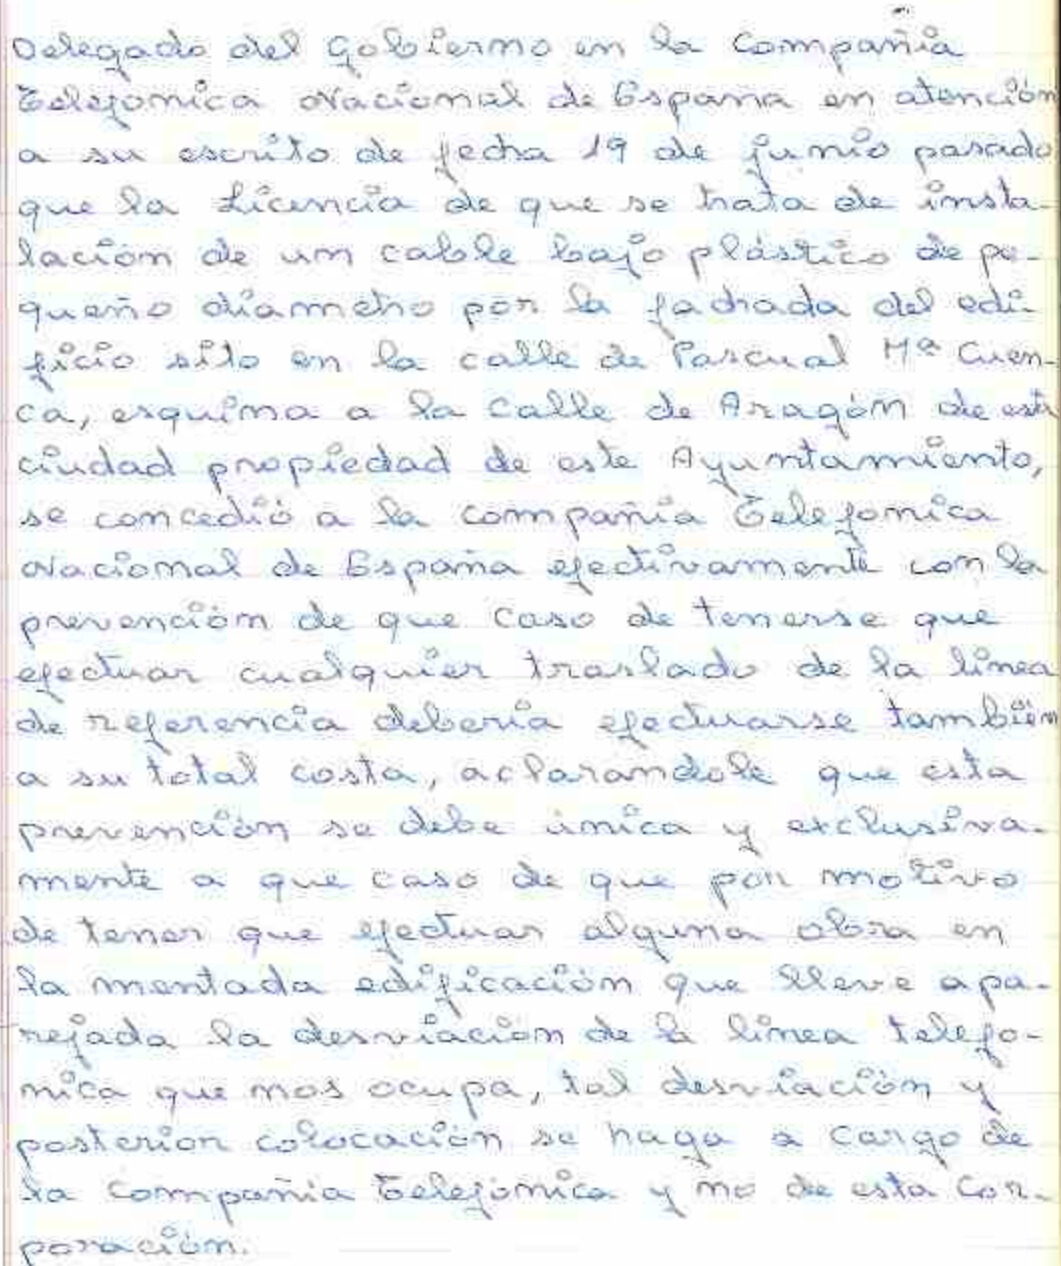 Delegado del Gobierno en la Compañia
Telefonica Nacional de España en atención
a su escrito de fecha 19 de junio pasado
que la Licencia de que se trata de insta-
lación de un cable bajo plástico de pe-
queño diametro por la fachada del edi-
ficio sito en la calle de Pascual Mª Cuen-
ca, esquina a la Calle de Aragón de esta
ciudad propiedad de este Ayuntamiento,
se concedió a la compañia Telefonica
Nacional de España efectivamente con la
prevención de que caso de tenerse que
efectuar cualquier traslado de la línea
de referencia debería efectuarse también
a su total costa, aclarandole que esta
prevención se debe única y exclusiva-
mente a que caso de que por motivo
de tener que efectuar alguna obra en
la mentada edificación que lleve apa-
rejada la desviación de la línea telefo-
nica que nos ocupa, tal desviación y
posterior colocación se haga a cargo de
la Compañia Telefónica y no de esta Cor-
poración.